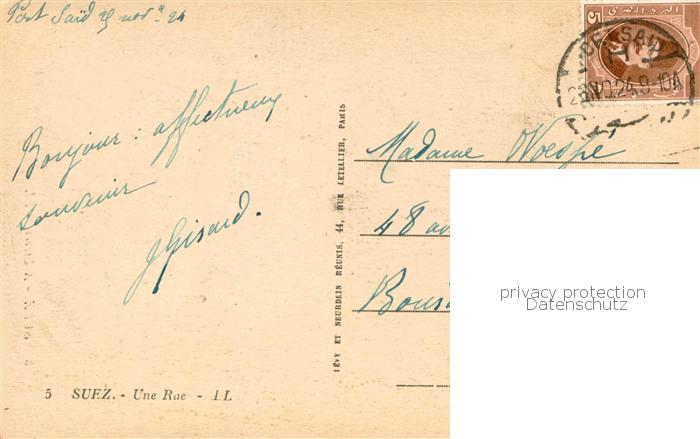 Port Saïd 25 nov. 24
Bonjour : affectueux
souvenir
JGisard.
5 SUEZ. - Une Rue - LL
LÉVY ET NEURDEIN RÉUNIS, 44, RUE LETELLIER, PARIS
5
PORT SAID
NO. 24. 9-10A
Madame
48 av
privacy protection
Datenschutz